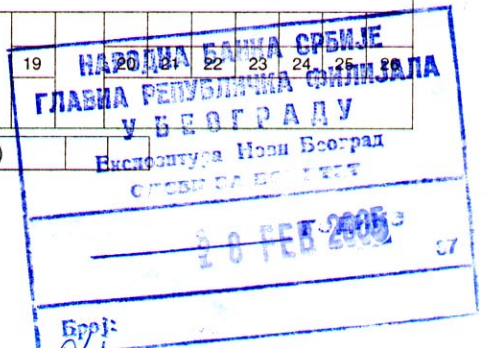 19 20 21 22 23 24 25 26
НАРОДНА БАНКА СРБИЈЕ
ГЛАВНА РЕПУБЛИЧКА ФИЛИЈАЛА
У БЕОГРАДУ
Експозитура Нови Београд
28 FEB 2005
07
Број: